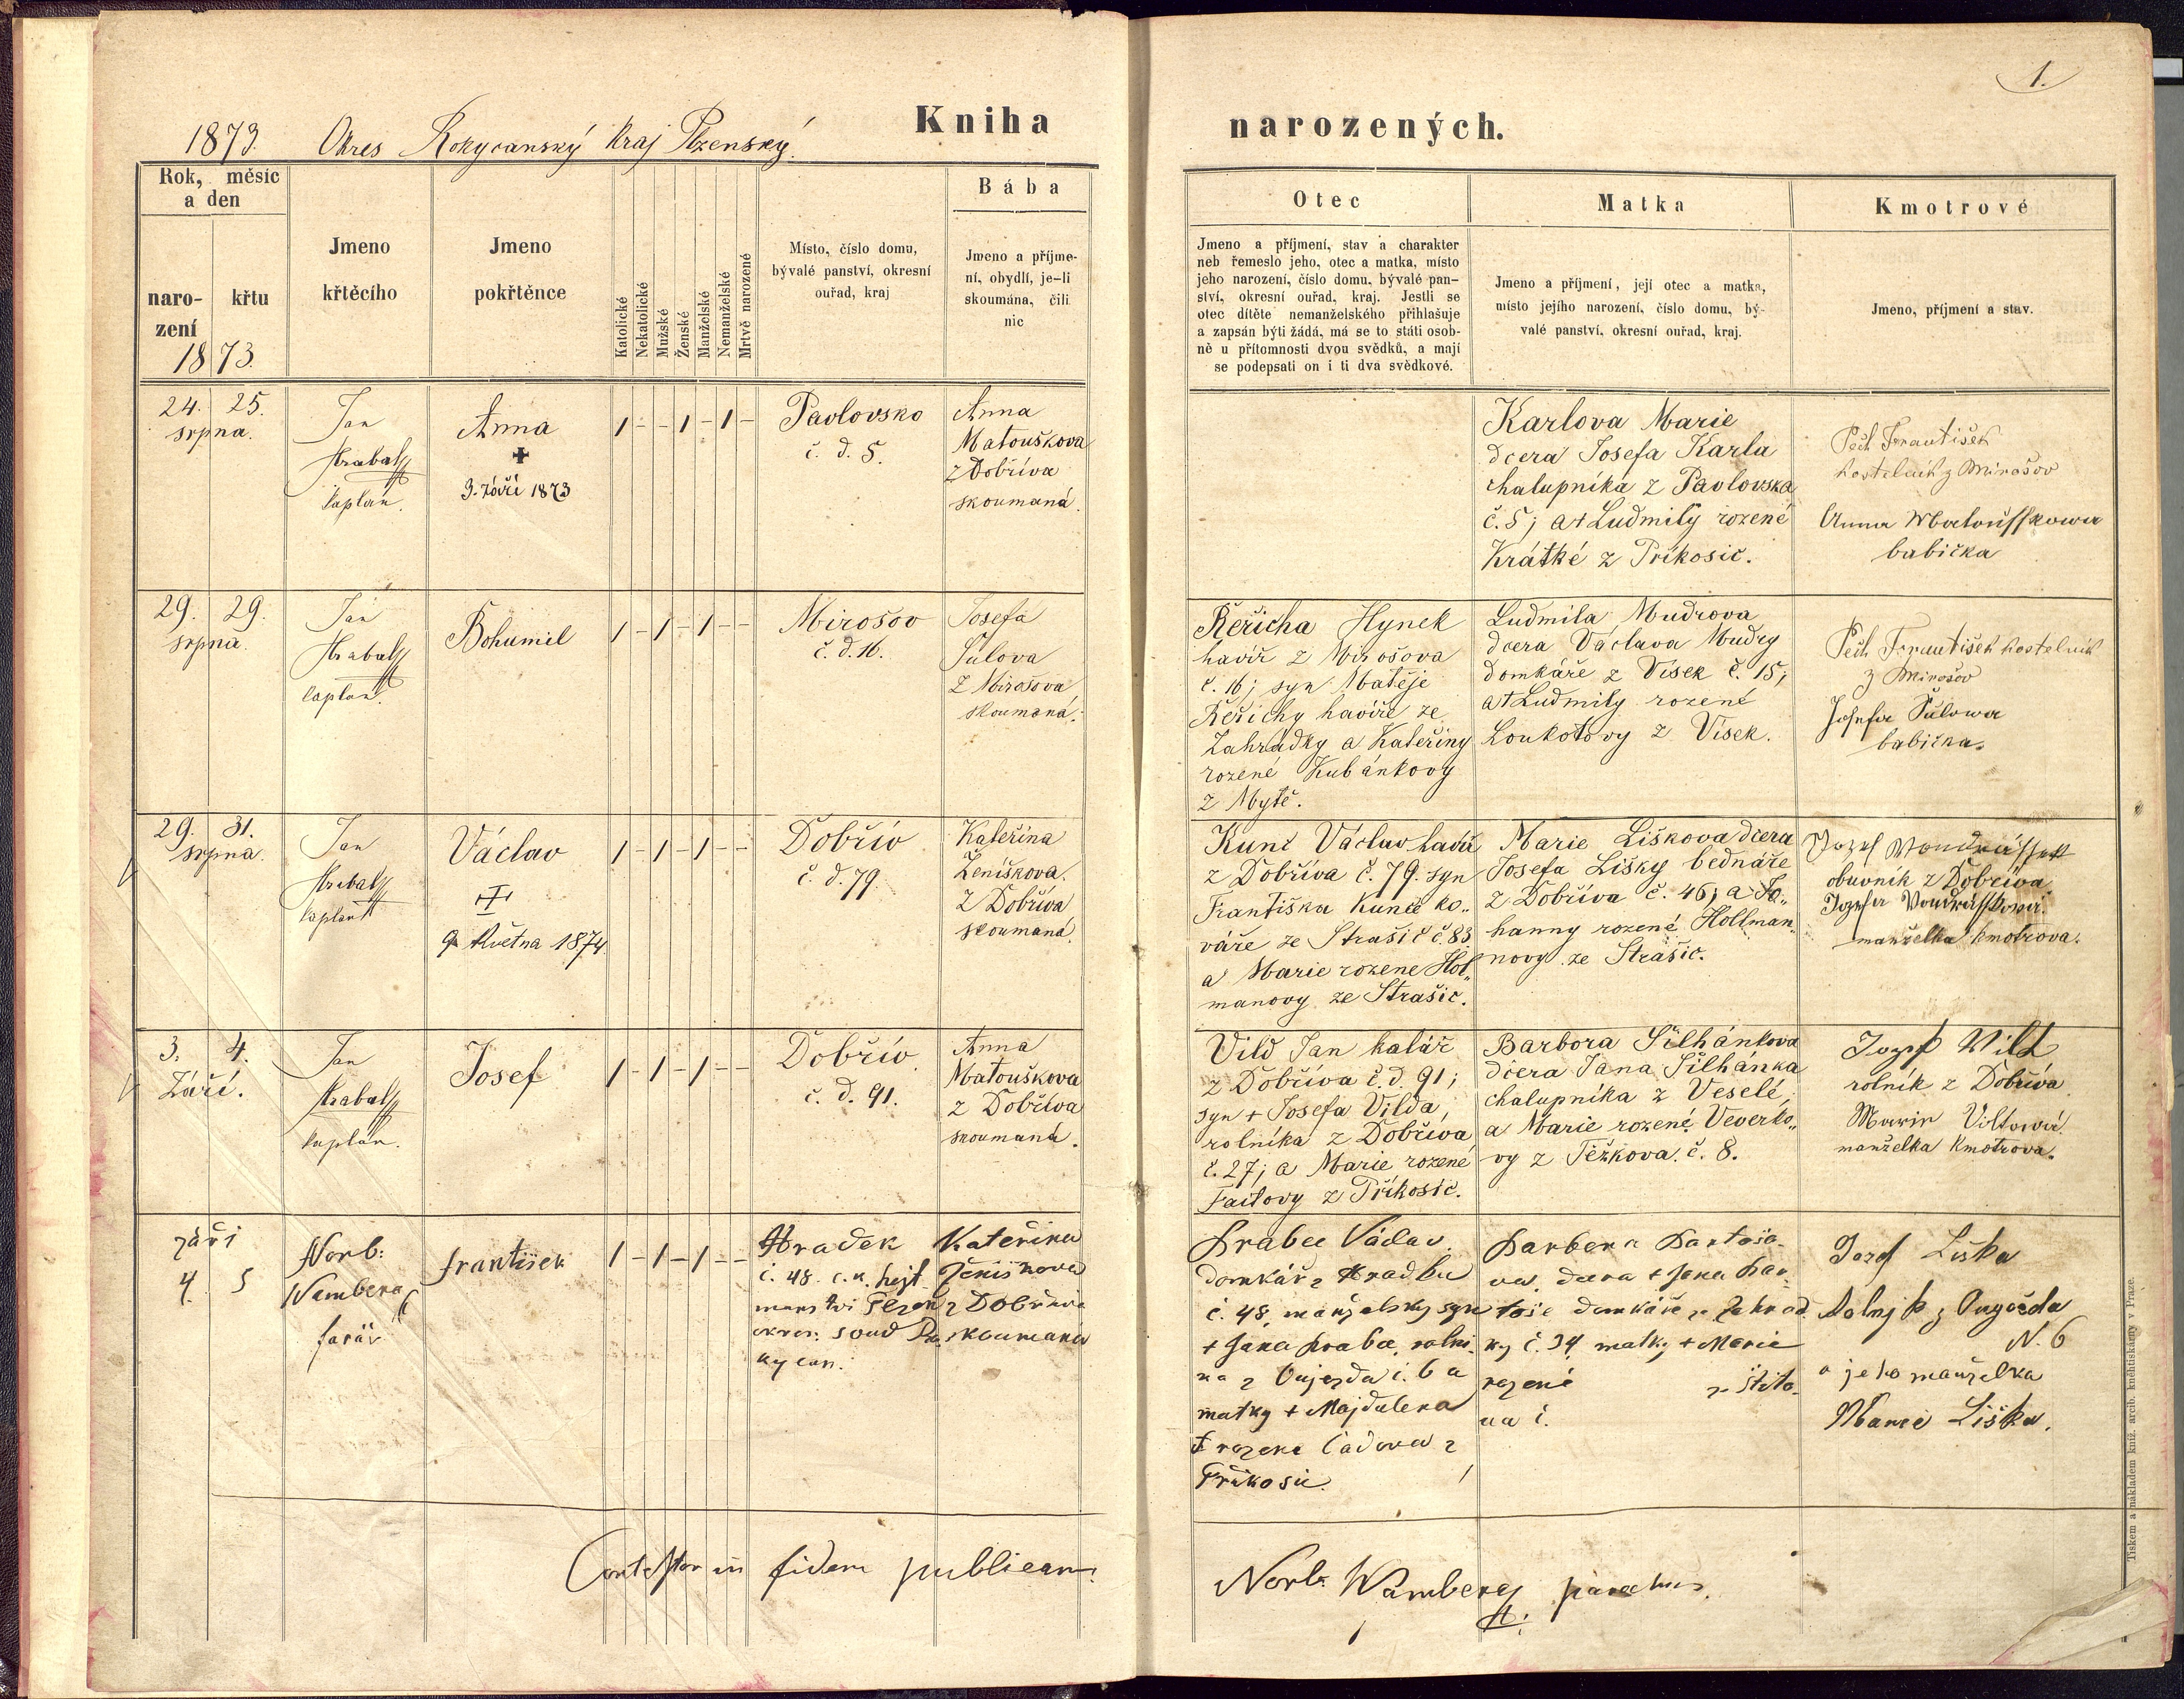 1.
1873. Okres Rokycanský Kraj Plzenský.
Kniha narozených.
Rok, měsíc
a den
naro-
zení
křtu
1873.
Jmeno
křtěcího
Jmeno
pokřtěnce
Katolické
Nekatolické
Mužské
Ženské
Manželské
Nemanželské
Mrtvě narozené
Místo, číslo domu,
bývalé panství, okresní
ouřad, kraj
Bába
Jmeno a příjme-
ní, obydlí, je-li
skoumána, čili
nic
Otec
Jmeno a příjmení, stav a charakter
neb řemeslo jeho, otec a matka, místo
jeho narození, číslo domu, bývalé pan-
ství, okresní ouřad, kraj. Jestli se
otec dítěte nemanželského přihlašuje
a zapsán býti žádá, má se to státi osob-
ně u přítomnosti dvou svědků, a mají
se podepsati on i ti dva svědkové.
Matka
Jmeno a příjmení, její otec a matka,
místo jejího narození, číslo domu, bý-
valé panství, okresní ouřad, kraj.
Kmotrové
Jmeno, příjmení a stav.
24. 25.
srpna.
Jan
Hrabat
kaplan.
Anna
+
3. Září 1873
1 - - 1 - 1 -
Pavlovsko
č. d. 5.
Anna
Matouškova
z Dobříva
skoumaná.
Karlova Marie
dcera Josefa Karla
chalupníka z Pavlovska
č. 5; a + Ludmily rozené
Krátké z Příkosic.
Pech František
kostelník z Mirošov
Anna Matouschkowa
babička
29. 29.
srpna.
Jan
Hrabat
kaplan.
Bohumil
1 - 1 - 1 - -
Mirošov
č. d. 16.
Josefa
Šulova
z Mirošova
skoumaná.
Řeřicha Hynek
havíř z Mirošova
č. 16; syn Matěje
Řeřichy havíře ze
Zahrádky a Kateřiny
rozené Kubánkovy
z Mytě.
Ludmila Mudrova
dcera Václava Mudry
domkáře z Vísek č. 15;
a + Ludmily rozené
Loukotovy z Vísek.
Pech František kostelník
z Mirošov
Josefa Šulowa
babička.
29. 31.
srpna.
Jan
Hrabat
kaplan
Václav
+
9. Května 1874.
1 - 1 - 1 - -
Dobřív
č. d. 79.
Kateřina
Ženíškova.
z Dobříva
skoumaná.
Kunc Václav havíř
z Dobříva č. 79. syn
Františka Kunce ko„
váře ze Strašic č. 83.
a Marie rozene Hol„
manovy ze Strašic.
Marie Liškova dcera
Josefa Lišky bednáře
z Dobříva č. 46; a Jo„
hanny rozené Hollman„
novy ze Strašic.
Jozef Wondráschek
obuvník z Dobříva.
Jozefa Vondráschkova.
manželka kmotrova.
3. 4.
Září.
Jan
Hrabat
kaplan.
Josef
1 - 1 - 1 - -
Dobřív
č. d. 91.
Anna
Matouškova
z Dobříva
skoumaná.
Vild Jan kolář
z Dobříva č. d. 91;
syn + Josefa Vilda,
rolníka z Dobříva
č. 27; a Marie rozené
Faitovy z Příkosic.
Barbora Šilhánkova
dcera Jana Šilhánka
chalupníka z Veselé,
a Marie rozené Veverko„
vy z Těžkova. č. 8.
Jozef Wilt
rolník z Dobříva
Marie Viltowá.
manželka kmotrova.
září
4. 5
Norb:
Wambera
farář
František
1 - 1 - 1 - -
Hradek
č. 48. c. k. hejt
manstvi Plzen
okres: soud Ro
kycan.
Kateřina
Ženiškova
z Dobřiva
skoumana
Hrabec Václav.
domkář z Hradku
č. 48, manželsky syn
+ Jana Hrabce, rolni-
ka z Oujezda č. 6 a
matky + Majdalena
rozena Cadova z
Přikosic.
Barbora Bartoso-
va, dcera + Jana Bar-
tose domkáře z Zahrad-
ky č. 34, matky + Marie
rozené z Štito-
va č.
Jozef Liška
z Oujezda
N. 6
a jeho manželka
Marie Liška.
Contestor in fidem publicam.
Norb. Wambera parochus.
Tiskem a nákladem kníž. arcib. knihtiskárny v Praze.